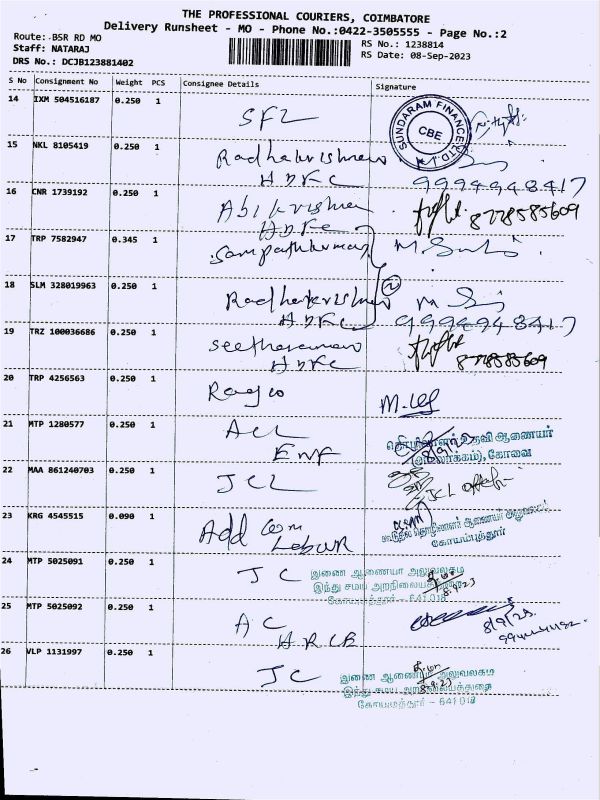 THE PROFESSIONAL COURIERS, COIMBATORE
Delivery Runsheet - MO - Phone No.:0422-3505555 - Page No.:2
Route:-BSR RD MO
Staff: NATARAJ
DRS No.: DCJB123881402
RS No.: 1238814
RS Date: 08-Sep-2023
S No Consignment No Weight PCS Consignee Details Signature
14 IXM 504516187 0.250 1 SFL SUNDARAM FINANCE LTD. CBE
15 NKL 8105419 0.250 1 Radhakrishnan
HDFC 9994948417
16 CNR 1739192 0.250 1 Abikrishna 8778585609
HDFC
17 TRP 7582947 0.345 1 Sampathkumar
18 SLM 328019963 0.250 1 Radhakrishnan
HDFC 9994948417
19 TRZ 100036686 0.250 1 Seetharaman 8778585609
HDFC
20 TRP 4256563 0.250 1
21 MTP 1280577 0.250 1 ACL
ENF உதவி ஆணையர்
கோவை
22 MAA 861240703 0.250 1 JCL JCL
23 KRG 4545515 0.090 1 Add Com
Labour
கோயம்புத்தூர்
24 MTP 5025091 0.250 1 JC இணை ஆணையர் அலுவலகம்
இந்து சமய அறநிலையத்துறை
கோயமுத்தூர் - 641 018
8.9.23
25 MTP 5025092 0.250 1 AC
HRCE 8/9/23
26 VLP 1131997 0.250 1 JC இணை ஆணையர் அலுவலகம்
இந்து சமய அறநிலையத்துறை
கோயமுத்தூர் - 641 018
8.9.23